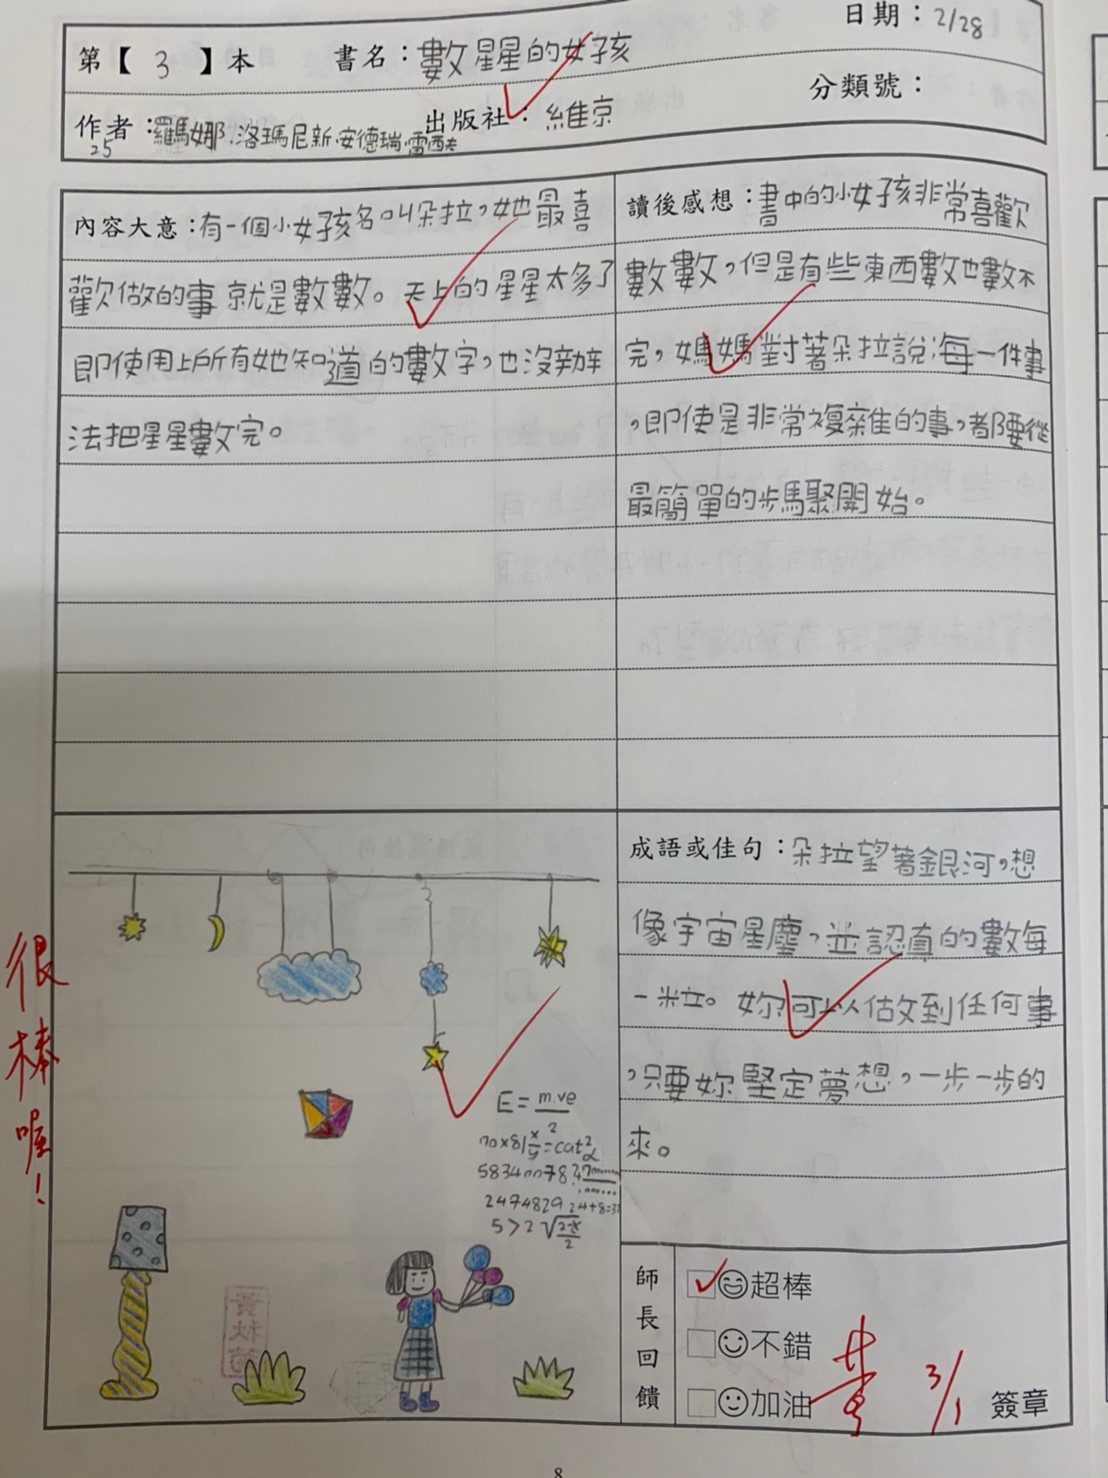 日期：2/28
第【 3 】本 書名：數星星的女孩
分類號：
作者：羅馬娜.洛瑪尼新.安德瑞.雷西夫 出版社：維京
25
內容大意：有一個小女孩名叫朵拉，她最喜
歡做的事就是數數。天上的星星太多了
即使用上所有她知道的數字，也沒辦
法把星星數完。
讀後感想：書中的小女孩非常喜歡
數數，但是有些東西數也數不
完，媽媽對著朵拉說：每一件事
，即使是非常複雜的事，都要從
最簡單的步驟開始。
很棒喔！
E = m.ve
2
5 > 2
成語或佳句：朵拉望著銀河，想
像宇宙星塵，並認真的數每
一粒。妳可以做到任何事
，只要妳堅定夢想，一步一步的
來。
師長回饋
超棒
不錯
加油
3/1 簽章
8